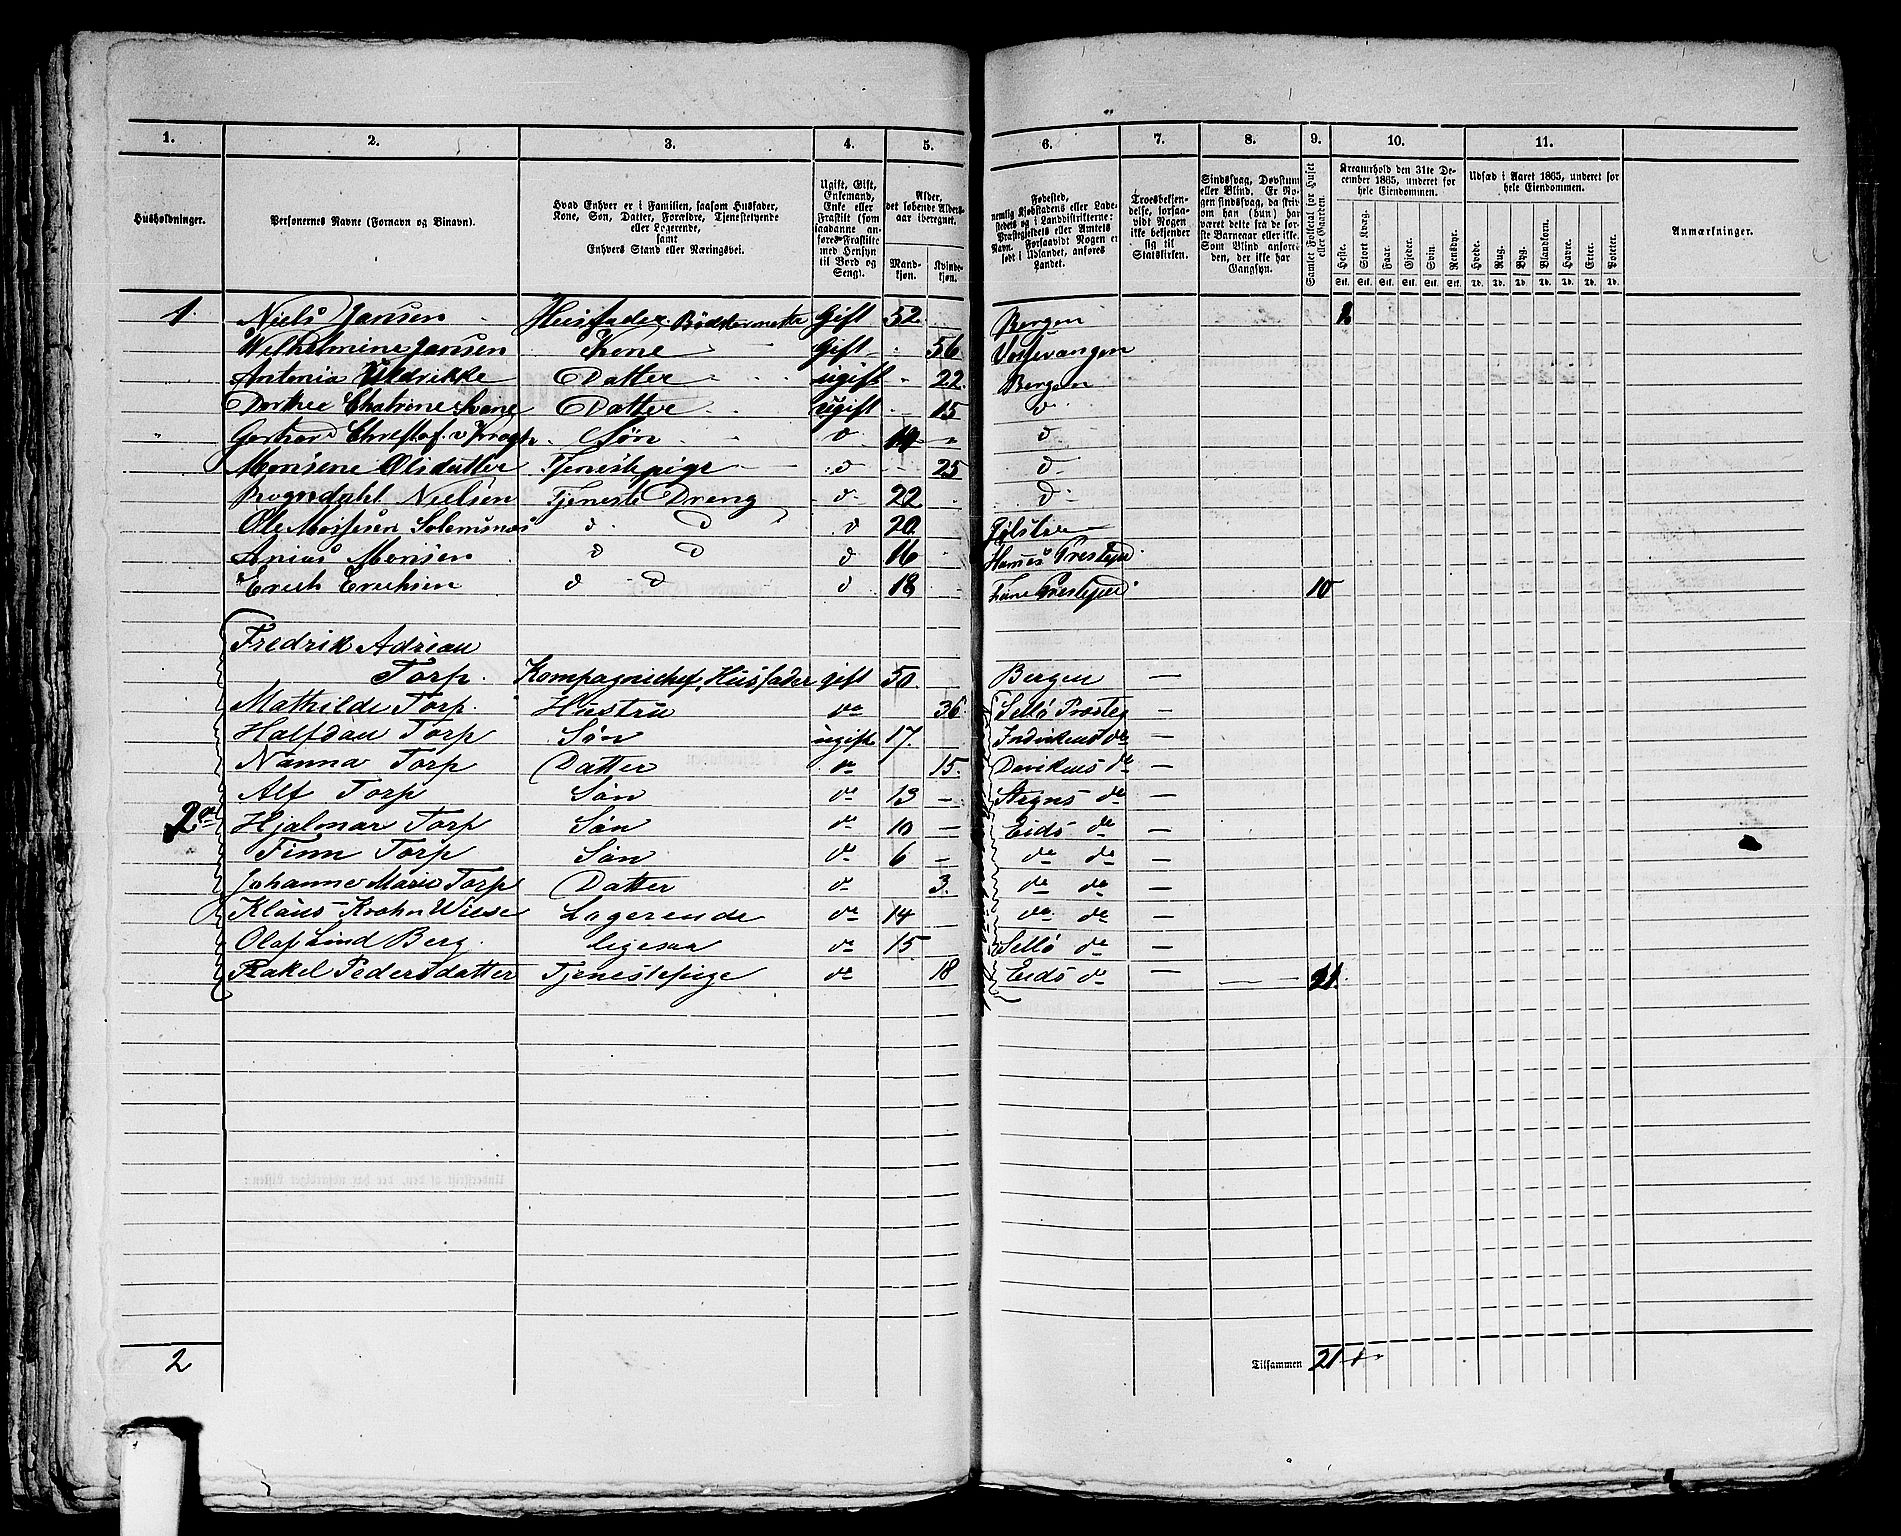 1. 2. 3. 4. 5. 6. 7. 8. 9. 10. 11.
Husholdninger.
Personernes Navne (Fornavn og Binavn).
Hvad Enhver er i Familien, saasom Husfader,
Kone, Søn, Datter, Forældre, Tjenestetyende
eller Logerende,
samt
Enhvers Stand eller Næringsvei.
Ugift, Gift,
Enkemand,
Enke eller
Fraskilt (som
saadanne an-
føres Fraskilte
med Hensyn
til Bord og
Seng).
Alder,
det løbende Alders-
aar iberegnet.
Mand-
kjøn.
Kvinde-
kjøn.
Fødested,
nemlig Kjøbstadens eller Lade-
stedets og i Landdistrikterne:
Præstegjeldets eller Amtets
Navn. Forsaavidt Nogen er
født i Udlandet, anføres
Landet.
Troesbekjen-
delse, forsaa-
vidt Nogen
ikke bekjender
sig til
Statskirken.
Sindssvag, Døvstum
eller Blind. Er No-
gen sindssvag, da skri-
ves om han (hun) har
været dette fra de før-
ste Barneaar eller ikke.
Som Blind anføres
den, der ikke har
Gangsyn.
Samlet Folketal for Huset
eller Gaarden.
Kreaturhold den 31te De-
cember 1865, underet for
hele Eiendommen.
Heste. Stort Kvæg. Faar. Gjeder. Svin. Rensdyr.
Stk. Stk. Stk. Stk. Stk. Stk.
Udsæd i Aaret 1865, underet for
hele Eiendommen.
Hvede. Rug. Byg. Blandkorn. Havre. Erter. Poteter.
Td. Td. Td. Td. Td. Td. Td.
Anmærkninger.
1 Niels Jansen Husfader Bødkermester Gift 52 Bergen
Wilhelmine Jansen Kone Gift 56 Vossevangen
Antonia Uldrikke Datter ugift 22 Bergen
Dorthee Chatrine Datter ugift 15 d
Gerhard Christof v Krogh Søn d d
Monsene Olsdatter Tjenestepige d 25 d
Rognedahl Nielsen Tjeneste Dreng d 22 d
Ole Mossesen Solemsnæs d d d 20 Jølster
Anias Monsen d d d 16 Hammes Prestejeld
Erich Erichsen d d d 18 Fane Prestejeld 10
Fredrik Adrian
Torp. Kompagnichef, Husfader gift 50. Bergen —
Mathilde Torp. Hustru do 36. Sellø Prosteg —
Halfdan Torp Søn ugift 17. Indvikens do —
Nanna Torp Datter do 15. Davikens do —
Alf Torp Søn do 13 — do —
2a Hjalmar Torp Søn do 10 — Eids do —
Finn Torp Søn do 6 — do do —
Johanne Marie Torp Datter do 3. do do —
Klaus Krohn Wiese Logerende do 14 do do —
Olaf Lind Berg. ligesaa do 15 Sellø do —
Rakel Pedersdatter Tjenestepige do 18 Eids do — 11.
2 Tilsammen 21